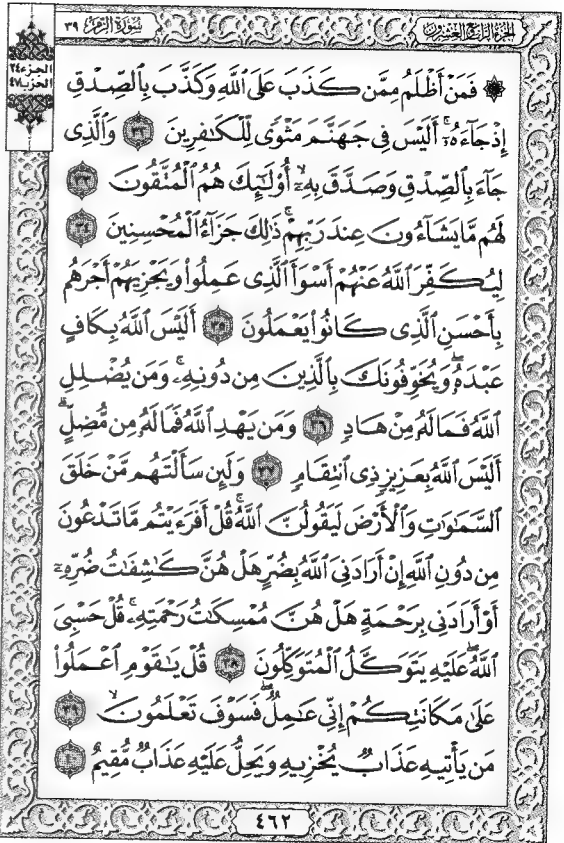 سُورَةُ الزُّمَرِ ٣٩
الجُزْءُ الرَّابِعُ وَالعِشْرُونَ
الجزء ٢٤
الحزب ٤٧
۞ فَمَنْ أَظْلَمُ مِمَّن كَذَبَ عَلَى ٱللَّهِ وَكَذَّبَ بِٱلصِّدْقِ
إِذْ جَآءَهُۥٓ ۚ أَلَيْسَ فِى جَهَنَّمَ مَثْوًى لِّلْكَٰفِرِينَ ٣٢ وَٱلَّذِى
جَآءَ بِٱلصِّدْقِ وَصَدَّقَ بِهِۦٓ ۙ أُو۟لَٰٓئِكَ هُمُ ٱلْمُتَّقُونَ ٣٣
لَهُم مَّا يَشَآءُونَ عِندَ رَبِّهِمْ ۚ ذَٰلِكَ جَزَآءُ ٱلْمُحْسِنِينَ ٣٤
لِيُكَفِّرَ ٱللَّهُ عَنْهُمْ أَسْوَأَ ٱلَّذِى عَمِلُوا۟ وَيَجْزِيَهُمْ أَجْرَهُم
بِأَحْسَنِ ٱلَّذِى كَانُوا۟ يَعْمَلُونَ ٣٥ أَلَيْسَ ٱللَّهُ بِكَافٍ
عَبْدَهُۥ ۖ وَيُخَوِّفُونَكَ بِٱلَّذِينَ مِن دُونِهِۦ ۚ وَمَن يُضْلِلِ
ٱللَّهُ فَمَا لَهُۥ مِنْ هَادٍ ٣٦ وَمَن يَهْدِ ٱللَّهُ فَمَا لَهُۥ مِن مُّضِلٍّ ۗ
أَلَيْسَ ٱللَّهُ بِعَزِيزٍ ذِى ٱنتِقَامٍ ٣٧ وَلَئِن سَأَلْتَهُم مَّنْ خَلَقَ
ٱلسَّمَٰوَٰتِ وَٱلْأَرْضَ لَيَقُولُنَّ ٱللَّهُ ۚ قُلْ أَفَرَءَيْتُم مَّا تَدْعُونَ
مِن دُونِ ٱللَّهِ إِنْ أَرَادَنِىَ ٱللَّهُ بِضُرٍّ هَلْ هُنَّ كَٰشِفَٰتُ ضُرِّهِۦٓ
أَوْ أَرَادَنِى بِرَحْمَةٍ هَلْ هُنَّ مُمْسِكَٰتُ رَحْمَتِهِۦ ۚ قُلْ حَسْبِىَ
ٱللَّهُ ۖ عَلَيْهِ يَتَوَكَّلُ ٱلْمُتَوَكِّلُونَ ٣٨ قُلْ يَٰقَوْمِ ٱعْمَلُوا۟
عَلَىٰ مَكَانَتِكُمْ إِنِّى عَٰمِلٌ ۖ فَسَوْفَ تَعْلَمُونَ ۙ ٣٩
مَن يَأْتِيهِ عَذَابٌ يُخْزِيهِ وَيَحِلُّ عَلَيْهِ عَذَابٌ مُّقِيمٌ ٤٠
٤٦٢